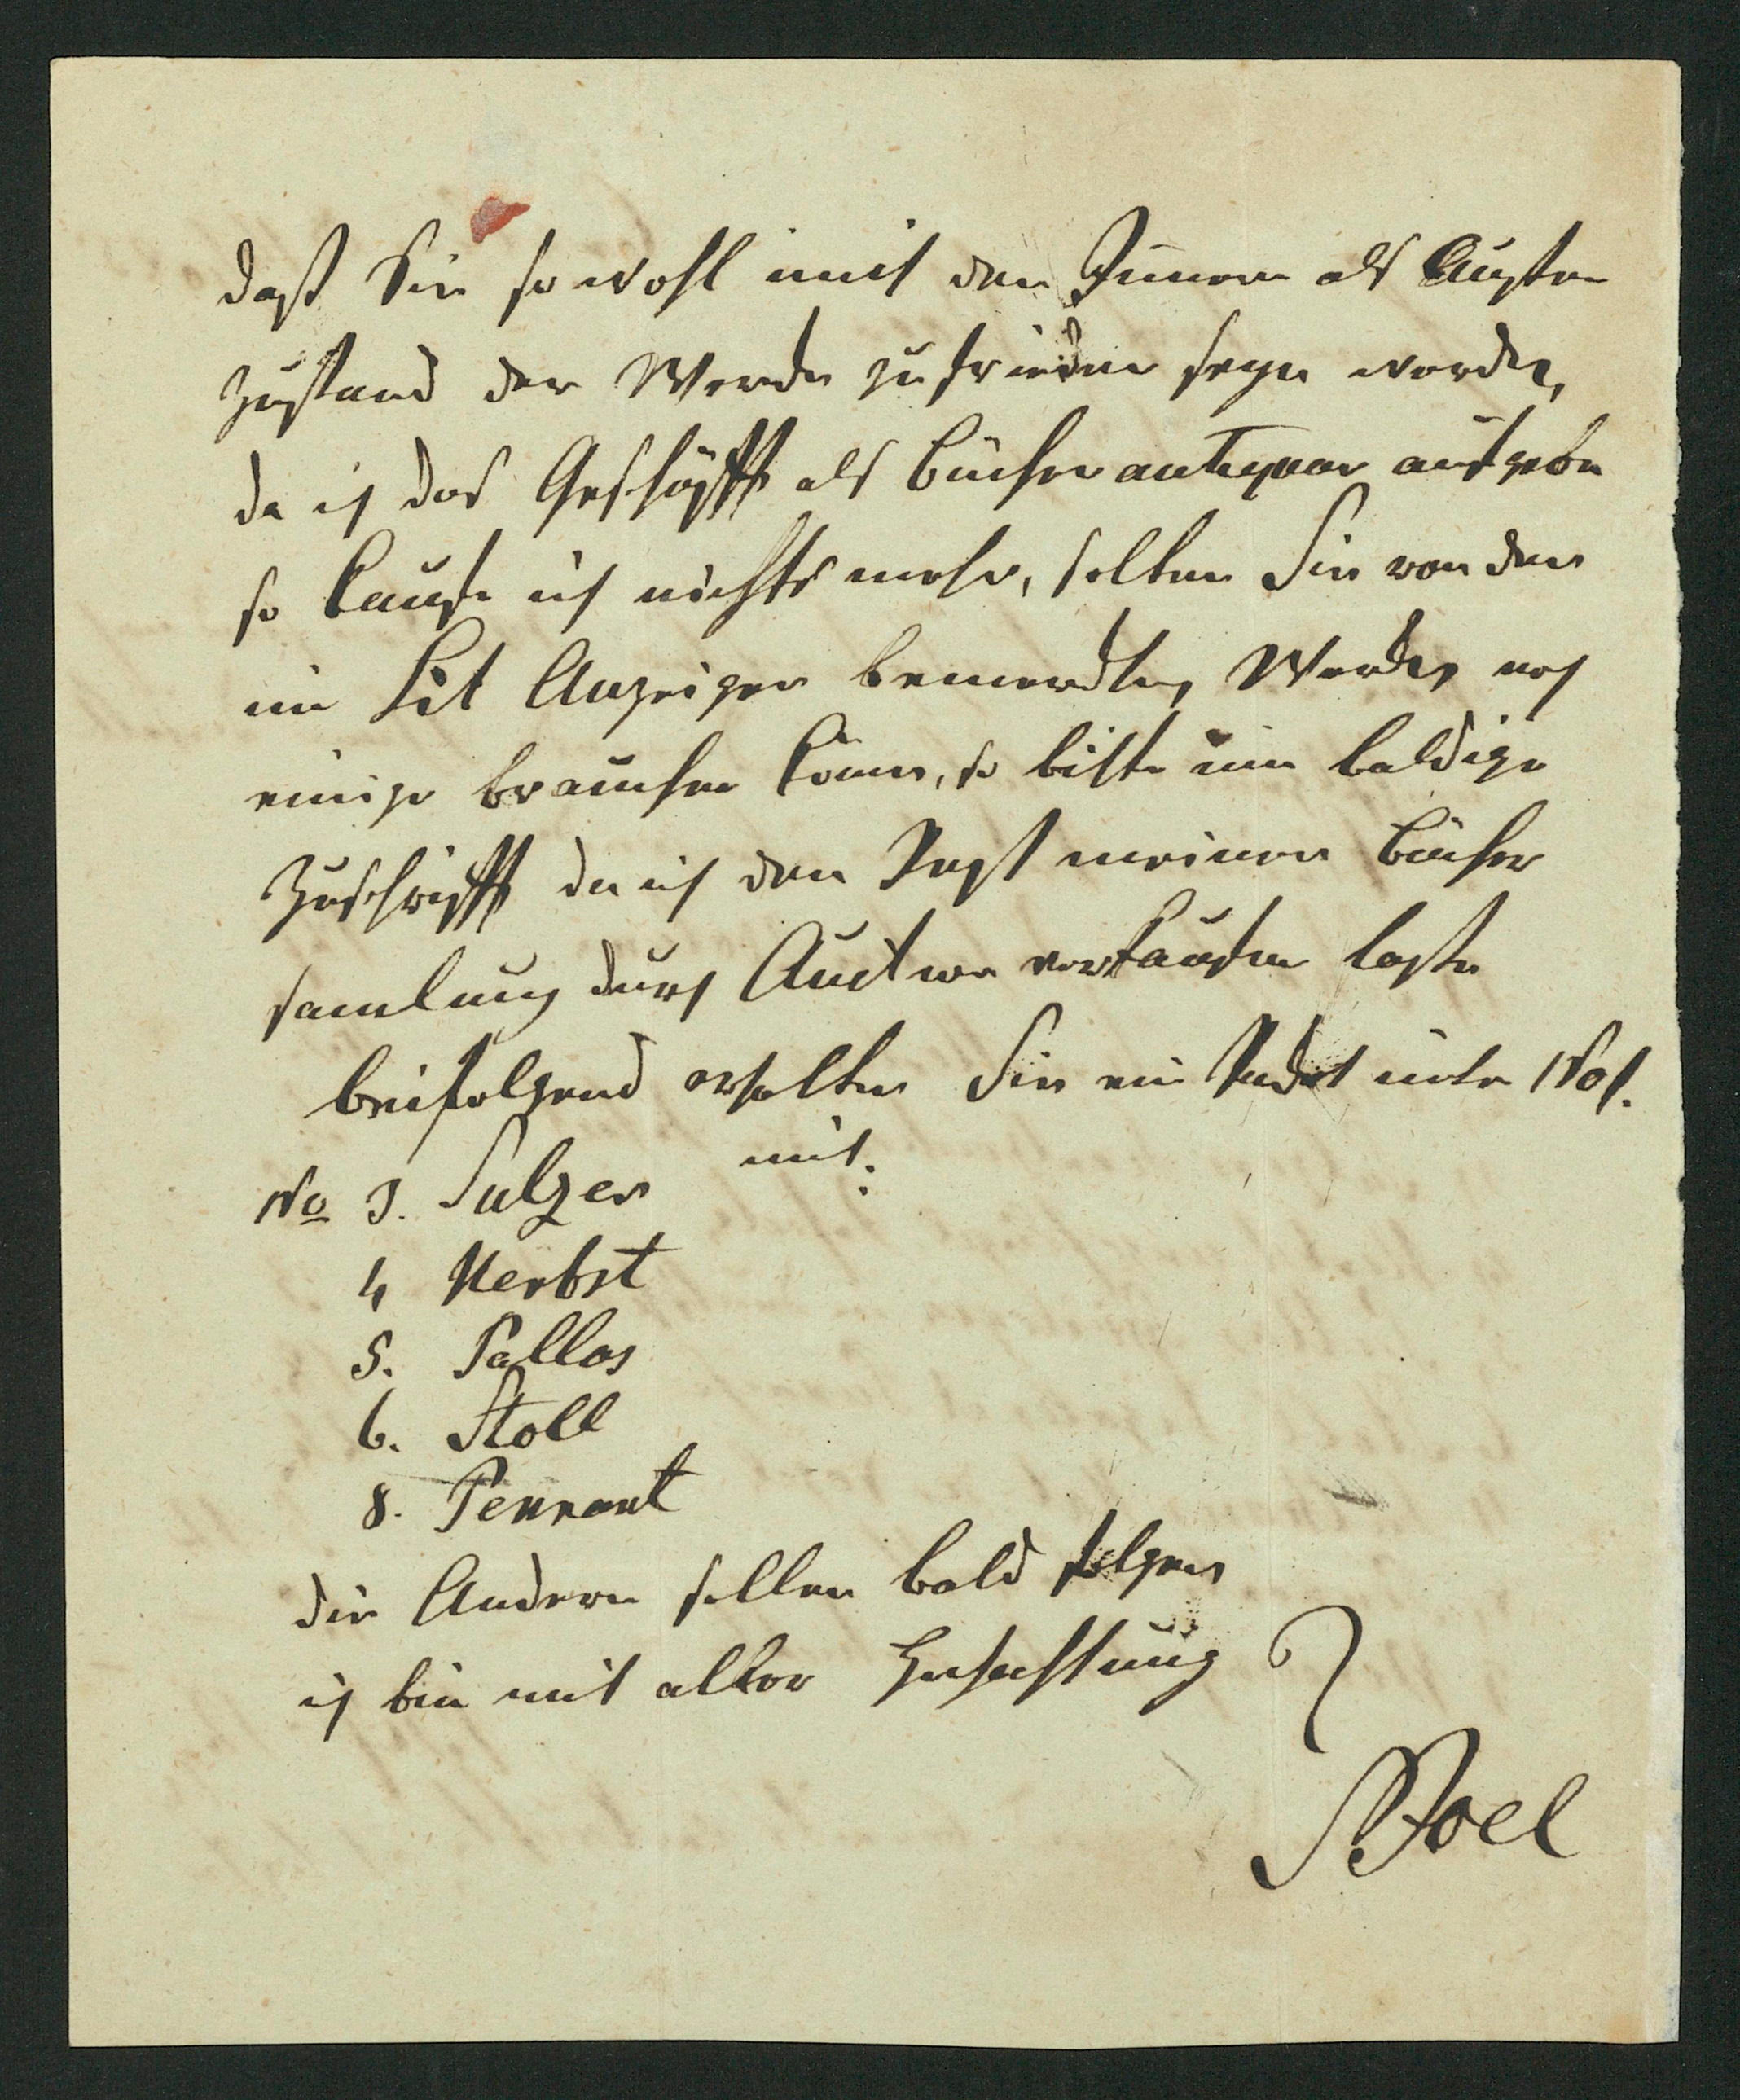 daß Sie so wohl mit den Innern als Außern
Zustand der Wercke zufrieden seyn werden,
da ich das Geschäfft als Bücher antiquar aufgebe
so Kaufe ich nichts mehr, solten Sie von den
im Lit Anzeiger bemerckten Wercken noch
einige brauchen Könen, so bitte um baldige
Zuschrifft da ich den Rest meiner Bücher
samlung durch Auction verkaufen lasse
beifolgend erhalten Sie ein Packet unter No 1.
mit:
No 3. Sulzer
4 Herbst
5. Pallas
6. Stoll
8. Pennant
die Andern sollen bald folgen
ich bin mit aller Hochachtung
Joel